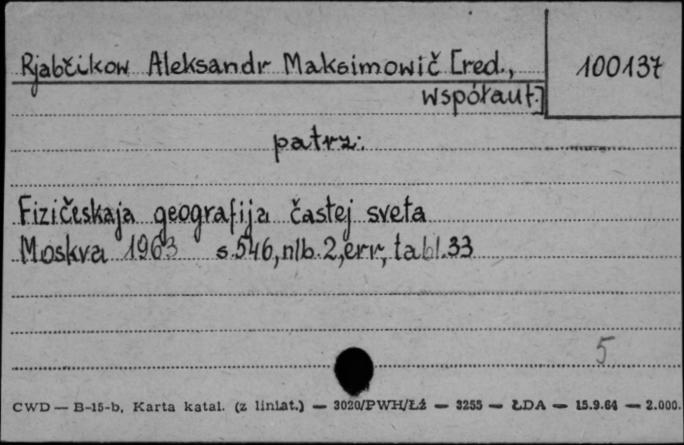 Rjabčikow Aleksandr Maksimowič [red.,
współaut.]
100137
patrz:
Fizičeskaja geografija častej sveta
Moskva 1963 s.546, nlb.2, err, tabl.33
5
CWD — B-15-b, Karta katal. (z liniat.) — 3020/PWH/Łż — 3255 — ŁDA — 15.9.64 — 2.000.